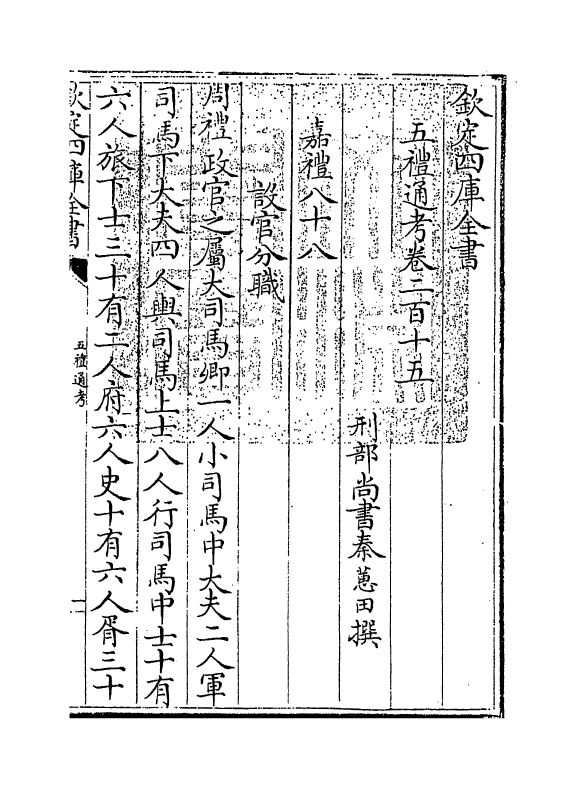 欽定四庫全書
五禮通考卷二百十五
刑部尚書秦蕙田撰
嘉禮八十八
設官分職
周禮政官之屬大司馬卿一人小司馬中大夫二人軍
司馬下大夫四人輿司馬上士八人行司馬中士十有
六人旅下士三十有二人府六人史十有六人胥三十
欽定四庫全書
五禮通考
一